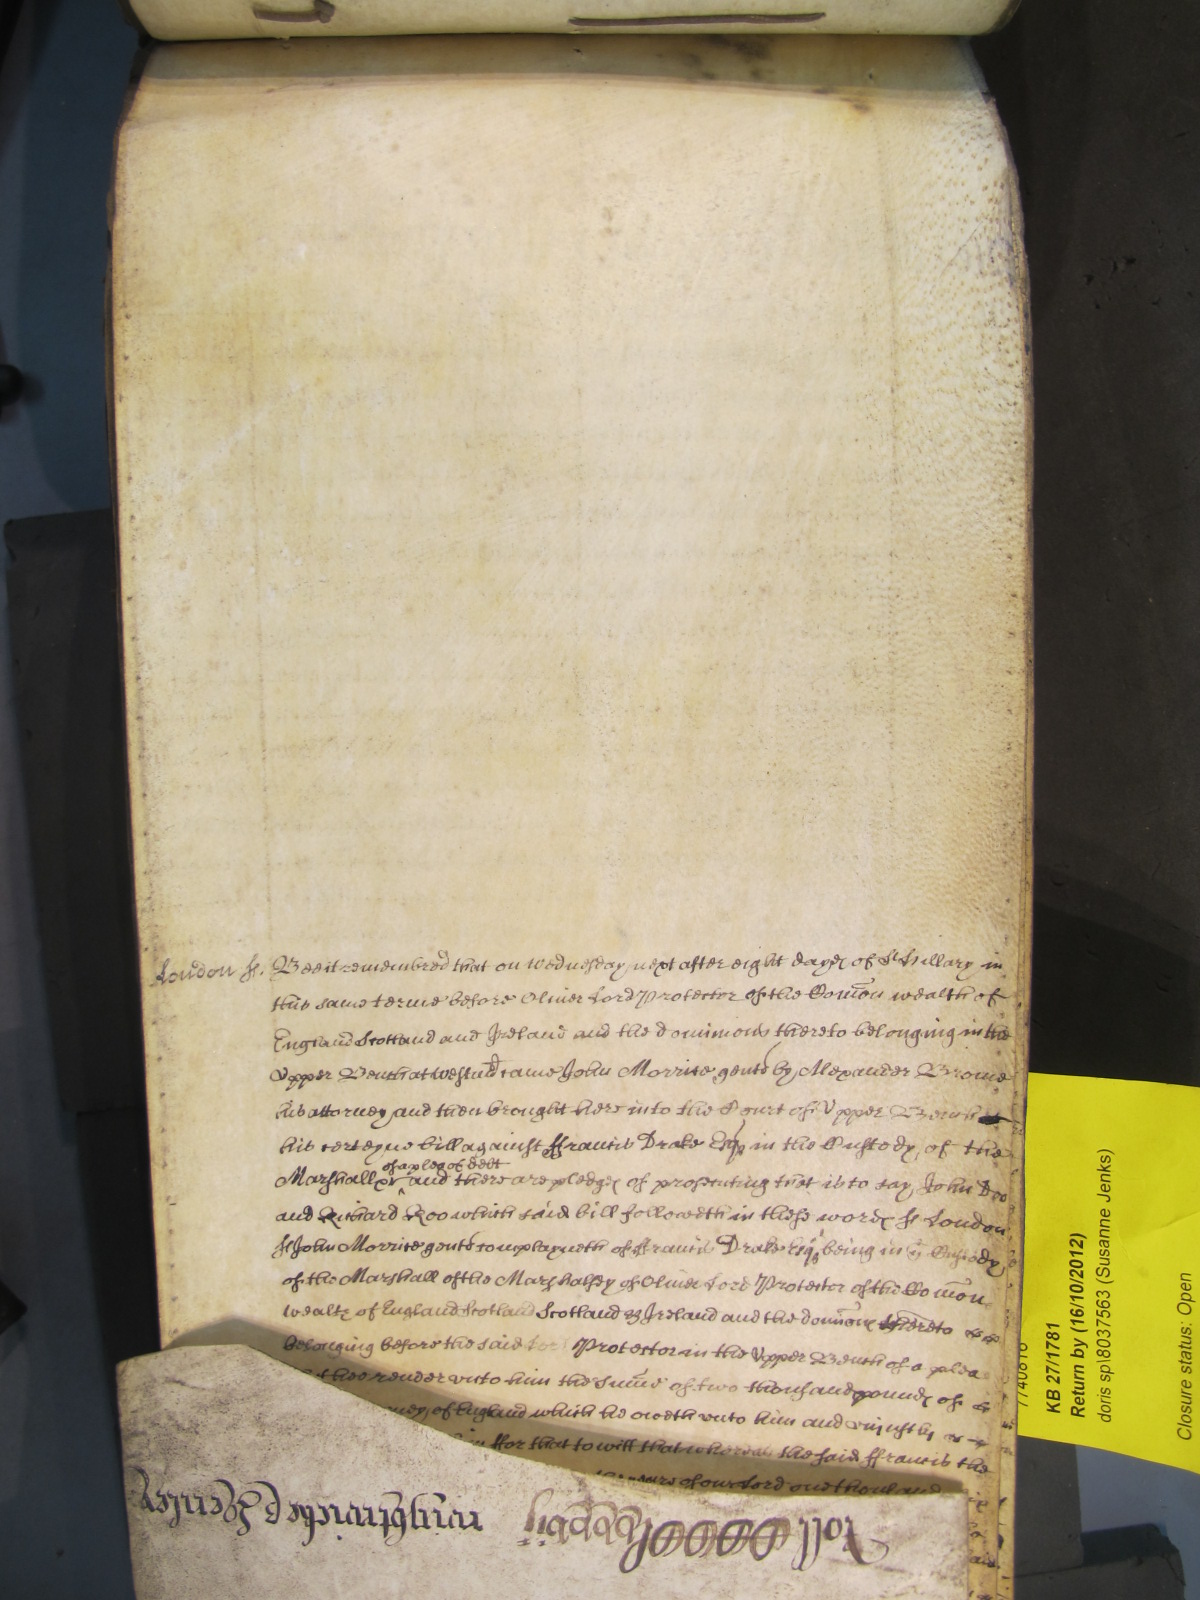 London ss. Bee it remembred that on Wednesday next after eight dayes of St Hillary in
this same terme before Oliver Lord Protector of the Com̄on wealth of
England Scotland and Ireland and the dominions thereto belonging in the
Vpper Bench at Westm̄ came John Morrice gent by Alexander Brome
his attorney and then brought here into the Court of Vpper Bench
his certeyne bill against ffrancis Drake Esqr in the Custody of the
of a plea of debt
Marshall &c and there are pledges of prosecuting that is to say John Doo
and Richard Roo which said bill followeth in these words ss London
ss John Morrice gent complayneth of ffrancis Drake Esqr being in ye Custody
of the Marshall of the Marshalsey of Oliver Lord Protector of the Com̄on
wealth of England Scotland Scotland & Ireland and the domions thereto
belonging before the said Lord Protector in the Vpper Bench of a plea
hee render vnto him the sum̄e of two thousand pounds of
money of England which he oweth vnto him and vnjustly
ffor that to witt that whereas the said ffrancis the
the yeare of our Lord one thousand
Roll
KB 27/1781
Return by (16/10/2012)
doris sp\8037563 (Susanne Jenks)
Closure status: Open